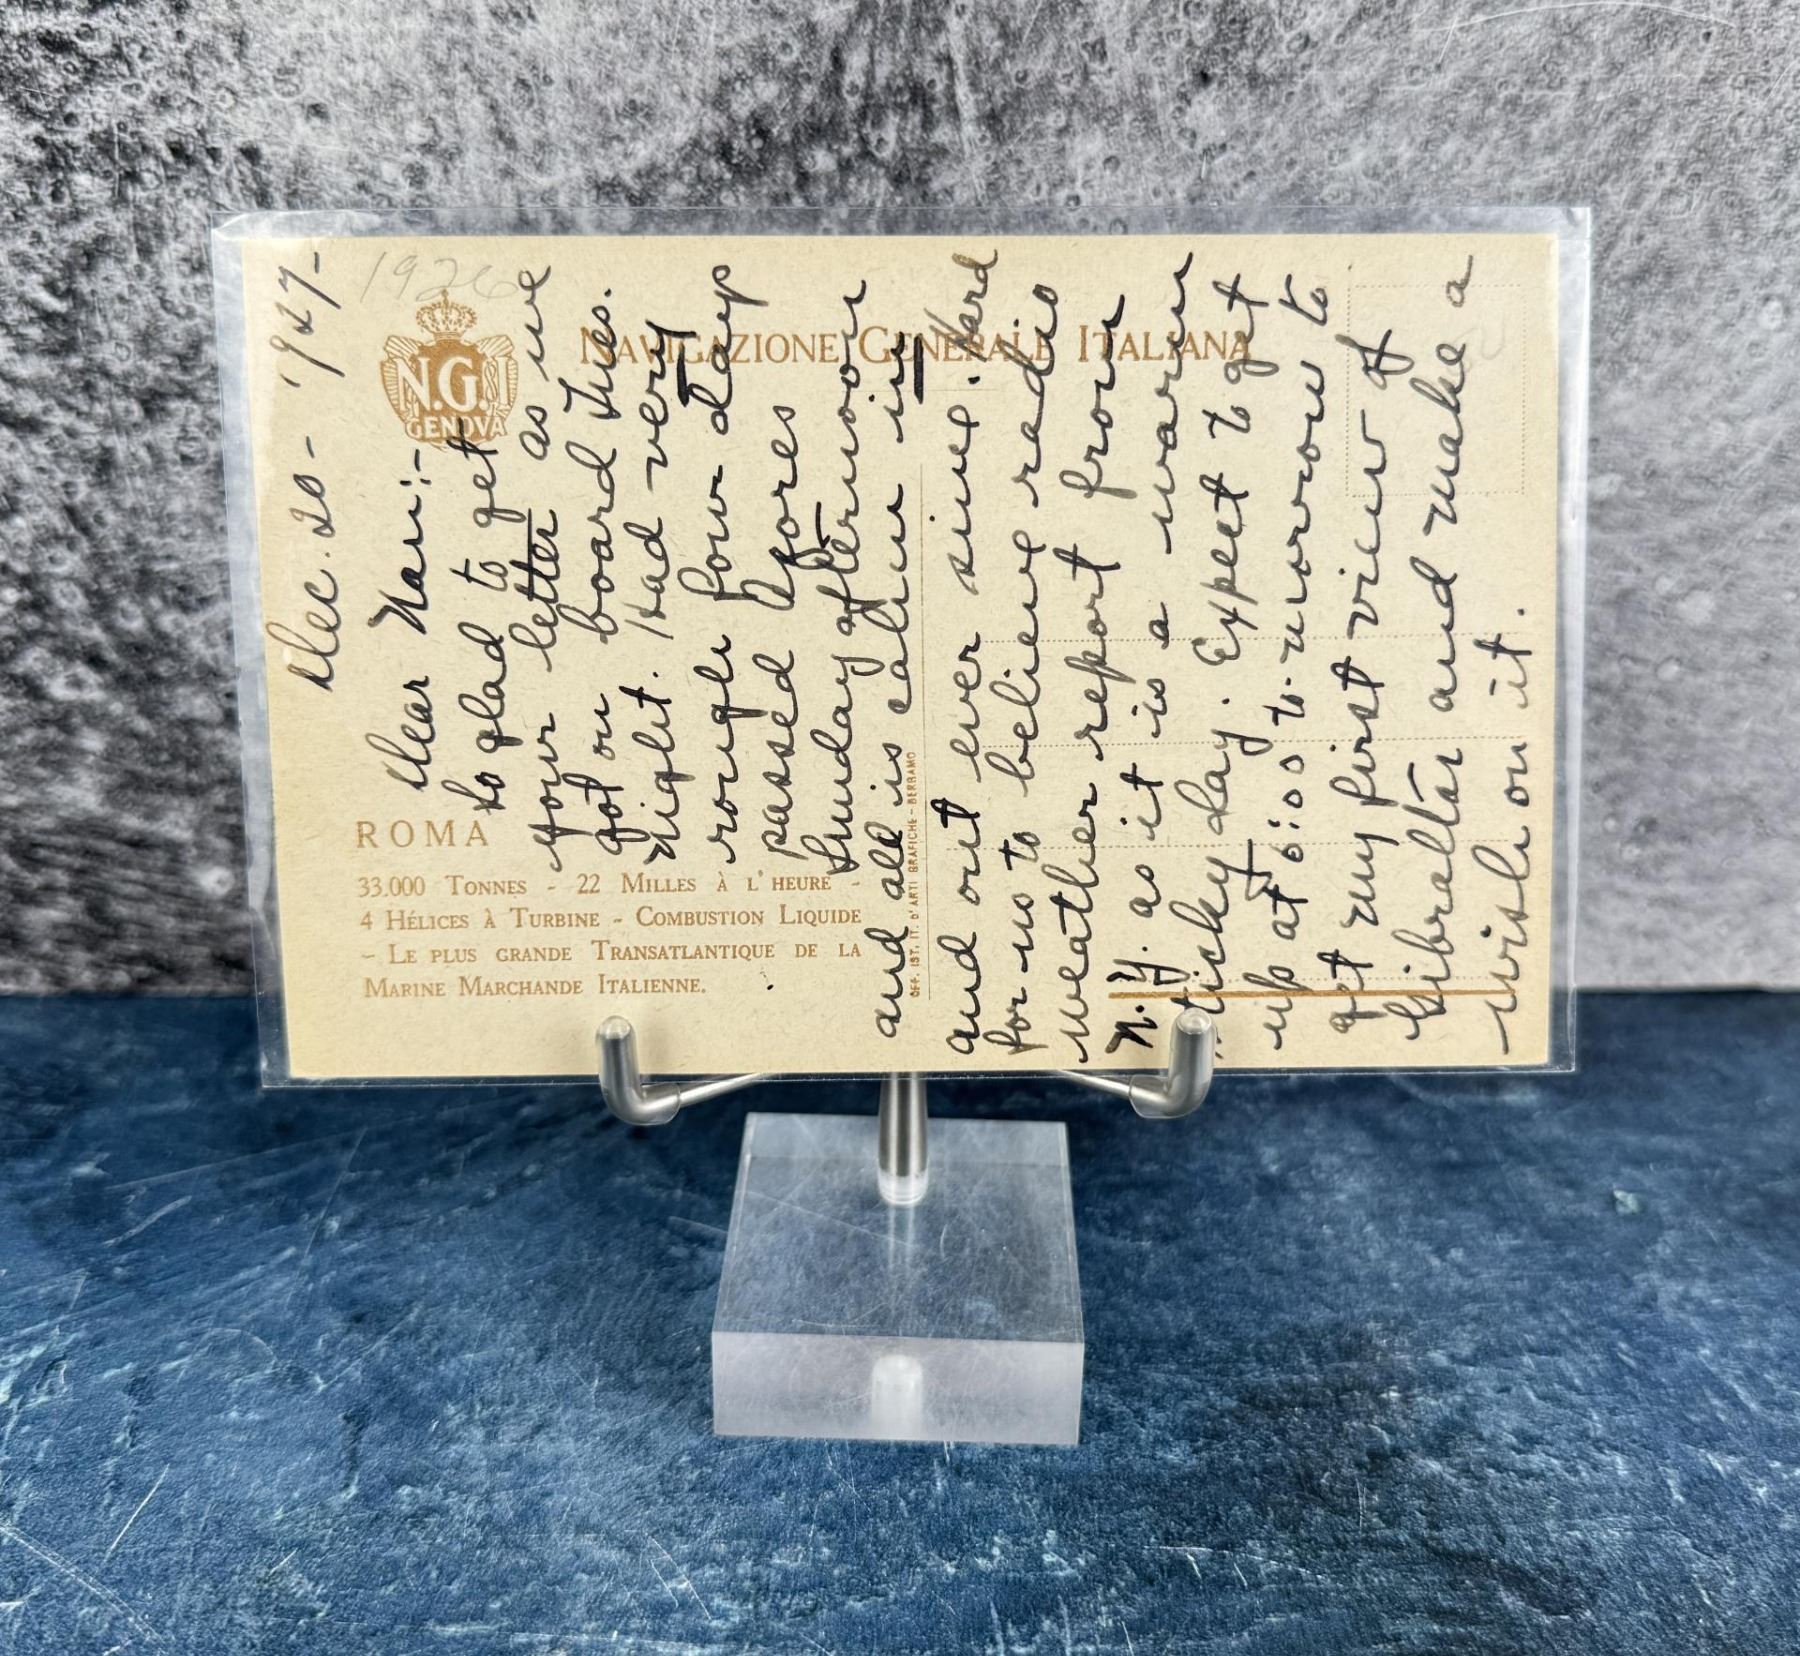 1926
N.G.I.
GENOVA
NAVIGAZIONE GENERALE ITALIANA
ROMA
33.000 TONNES - 22 MILLES À L'HEURE -
4 HÉLICES À TURBINE - COMBUSTION LIQUIDE
- LE PLUS GRANDE TRANSATLANTIQUE DE LA
MARINE MARCHANDE ITALIENNE.
OFF. IST. IT. D'ARTI GRAFICHE - BERGAMO
Dec. 20 - 1927 -
Dear Nan:-
So glad to get
your letter as we
got on board Tues.
night. Had very
rough four days
passed Azores
Sunday afternoon
and all is calm in
and out ever since. Hard
for us to believe radio
weather report from
N.Y. as it is a warm
sticky day. Expect to get
up at 6:00 to-morrow to
get my first view of
Gibraltar and make a
wish on it.